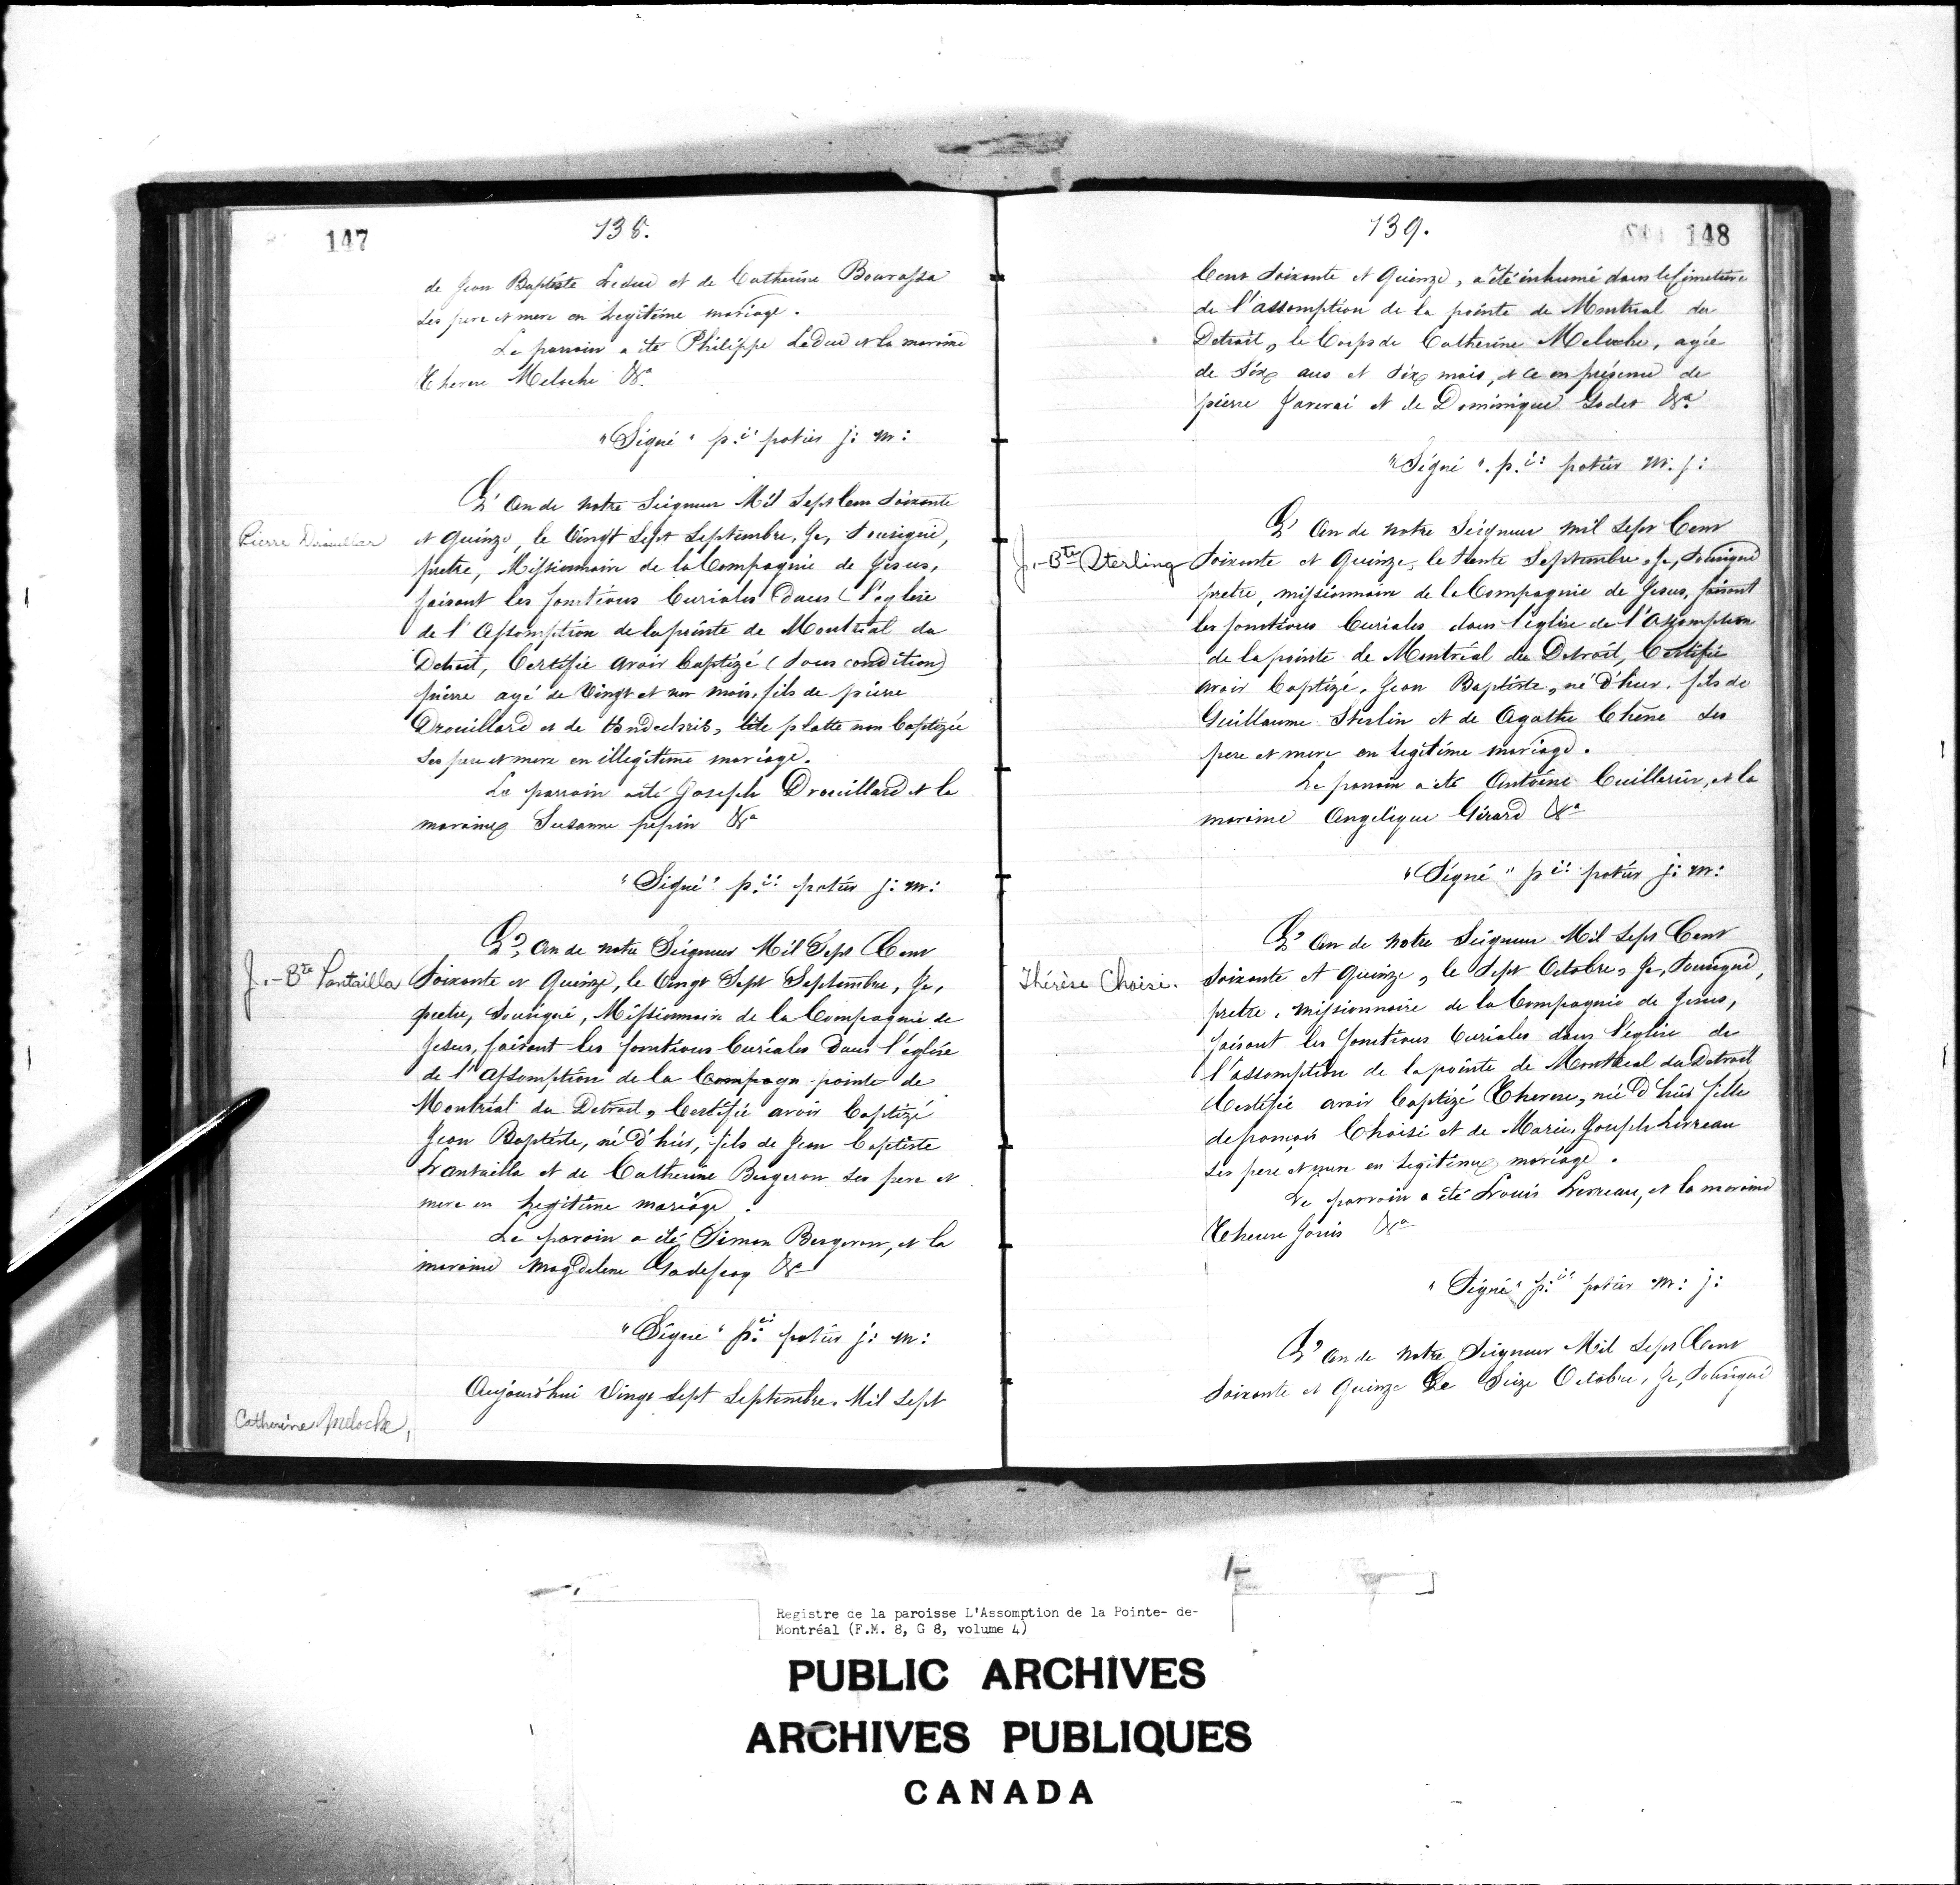 147
138.
de Jean Baptiste Leduc et de Catherine Bourassa
ses pere et mere en Legitime mariage.
Le parrain a été Philippe LeDuc et la maraine
Therese Meloche &a.
"Signé" p.i: potier j: m:
Pierre Drouillar
L'An de notre Seigneur Mil Sept Cens Soixante
et Quinze, le Vingt Sept Septembre, Je, Sousigné,
pretre, Missionnaire de la Compagnie de Jesus,
faisant les fonctions Curiales dans l'eglise
de l'Assomption de la pointe de Montréal du
Detroit, Certifie avoir baptizé (sous condition)
pierre agé de Vingt et un mois, fils de pierre
Drouillard et de , tête platte non baptizée
ses pere et mere en illégitime mariage.
Le parrain a été Joseph Drouillard et la
maraine Susanne pepin &a
"Signé" p.i: potier j: m:
J.-Bte Lantailla
L'An de notre Seigneur Mil Sept Cent
Soixante et Quinze, le Vingt Sept Septembre, Je,
pretre, Sousigné, Missionnaire de la Compagnie de
Jesus, faisant les fonctions Curiales dans l'église
de l'Assomption de la Compagn pointe de
Montréal du Detroit, Certifie avoir baptizé
Jean Baptiste, né d'hier, fils de Jean baptiste
Lantailla et de Catherine Bergeron ses pere et
mere en Legitime mariage.
Le parain a été Simon Bergeron, et la
maraine Magdelene Gadefcoq &a
"Signé" p.i: potier j: m:
Catherine Meloche,
Aujourd'hui Vingt Sept Septembre, Mil Sept
139.
148
Cens Soixante et Quinze, a été inhumé dans le Cimetiere
de l'assomption de la pointe de Montreal du
Detroit, le Corps de Catherine Meloche, agée
de Six ans et Six mois, et ce en présence de
pierre Javerai et de Dominique Godet &a.
"Signé". p.i: potier m. j:
J.-Bte Sterling
L'An de notre Seigneur mil Sept Cent
Soixante et Quinze, le trente Septembre, Je, Sousigné
pretre, missionnaire de la Compagnie de Jesus, faisant
les fonctions Curiales dans l'église de l'Assomption
de la pointe de Montréal du Detroit, Certifie
avoir baptizé, Jean Baptiste, né d'hier, fils de
Guillaume Sterlin et de Agathe Chêne ses
pere et mere en legitime mariage.
Le parrain a été Antoine Cuillerier, et la
maraine Angelique Girard &a
"Signé" p i: potier j: m:
Thérèse Choisi.
L'An de notre Seigneur Mil Sept Cent
Soixante et Quinze, le Sept Octobre, Je, Sousigné,
pretre, missionnaire de la Compagnie de Jesus,
faisant les fonctions Curiales dans l'église de
l'assomption de la pointe de Montreal du Detroit
Certifie avoir baptizé Therese, née d'hier fille
de françois Choisi et de Marie Joseph Livreau
ses pere et mere en legitime mariage.
Le parrain a été Louis Levreau, et la maraine
Therese Jonis &a
"Signé" p.i: potier m: j:
L'An de notre Seigneur Mil Sept Cent
Soixante et Quinze Le Seize Octobre, Je, Sousigné
Registre de la paroisse L'Assomption de la Pointe- de-
Montréal (F.M. 8, G 8, volume 4)
PUBLIC ARCHIVES
ARCHIVES PUBLIQUES
CANADA